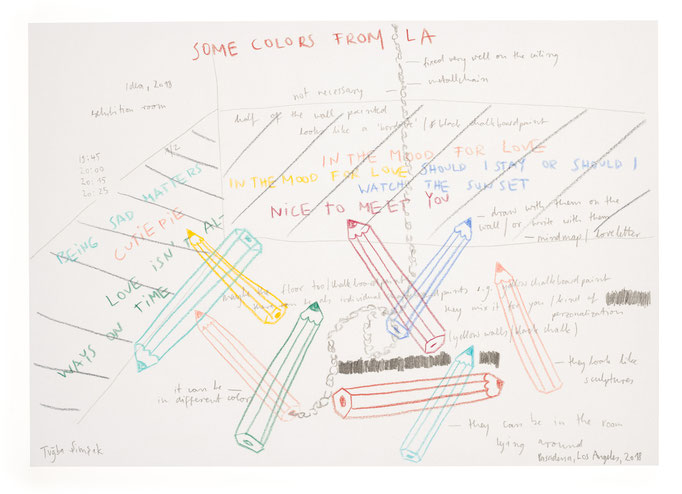 SOME COLORS FROM LA
fixed very well on the ceiling
metallchain
Idea, 2018
exhibition room
not necessary
half of the wall painted
looks like a "border" / black chalkboardpaint
1/2
19:45
20:00
20:15
20:25
IN THE MOOD FOR LOVE
IN THE MOOD FOR LOVE SHOULD I STAY OR SHOULD I
WATCH THE SUNSET
NICE TO MEET YOU
BEING SAD MATTERS
CUTIEPIE
LOVE ISN'T AL-
WAYS ON TIME
draw with them on the
wall / or write with them
mindmap / loveletter
maybe the floor too / chalkboardpaint
individual
paints e.g. yellow chalkboardpaint
they mix it for you / kind of
personalization
(yellow walls / black chalk)
they look like
sculptures
it can be
in different color
they can be in the room
lying around
Tuğba Şimşek
Pasadena, Los Angeles, 2018